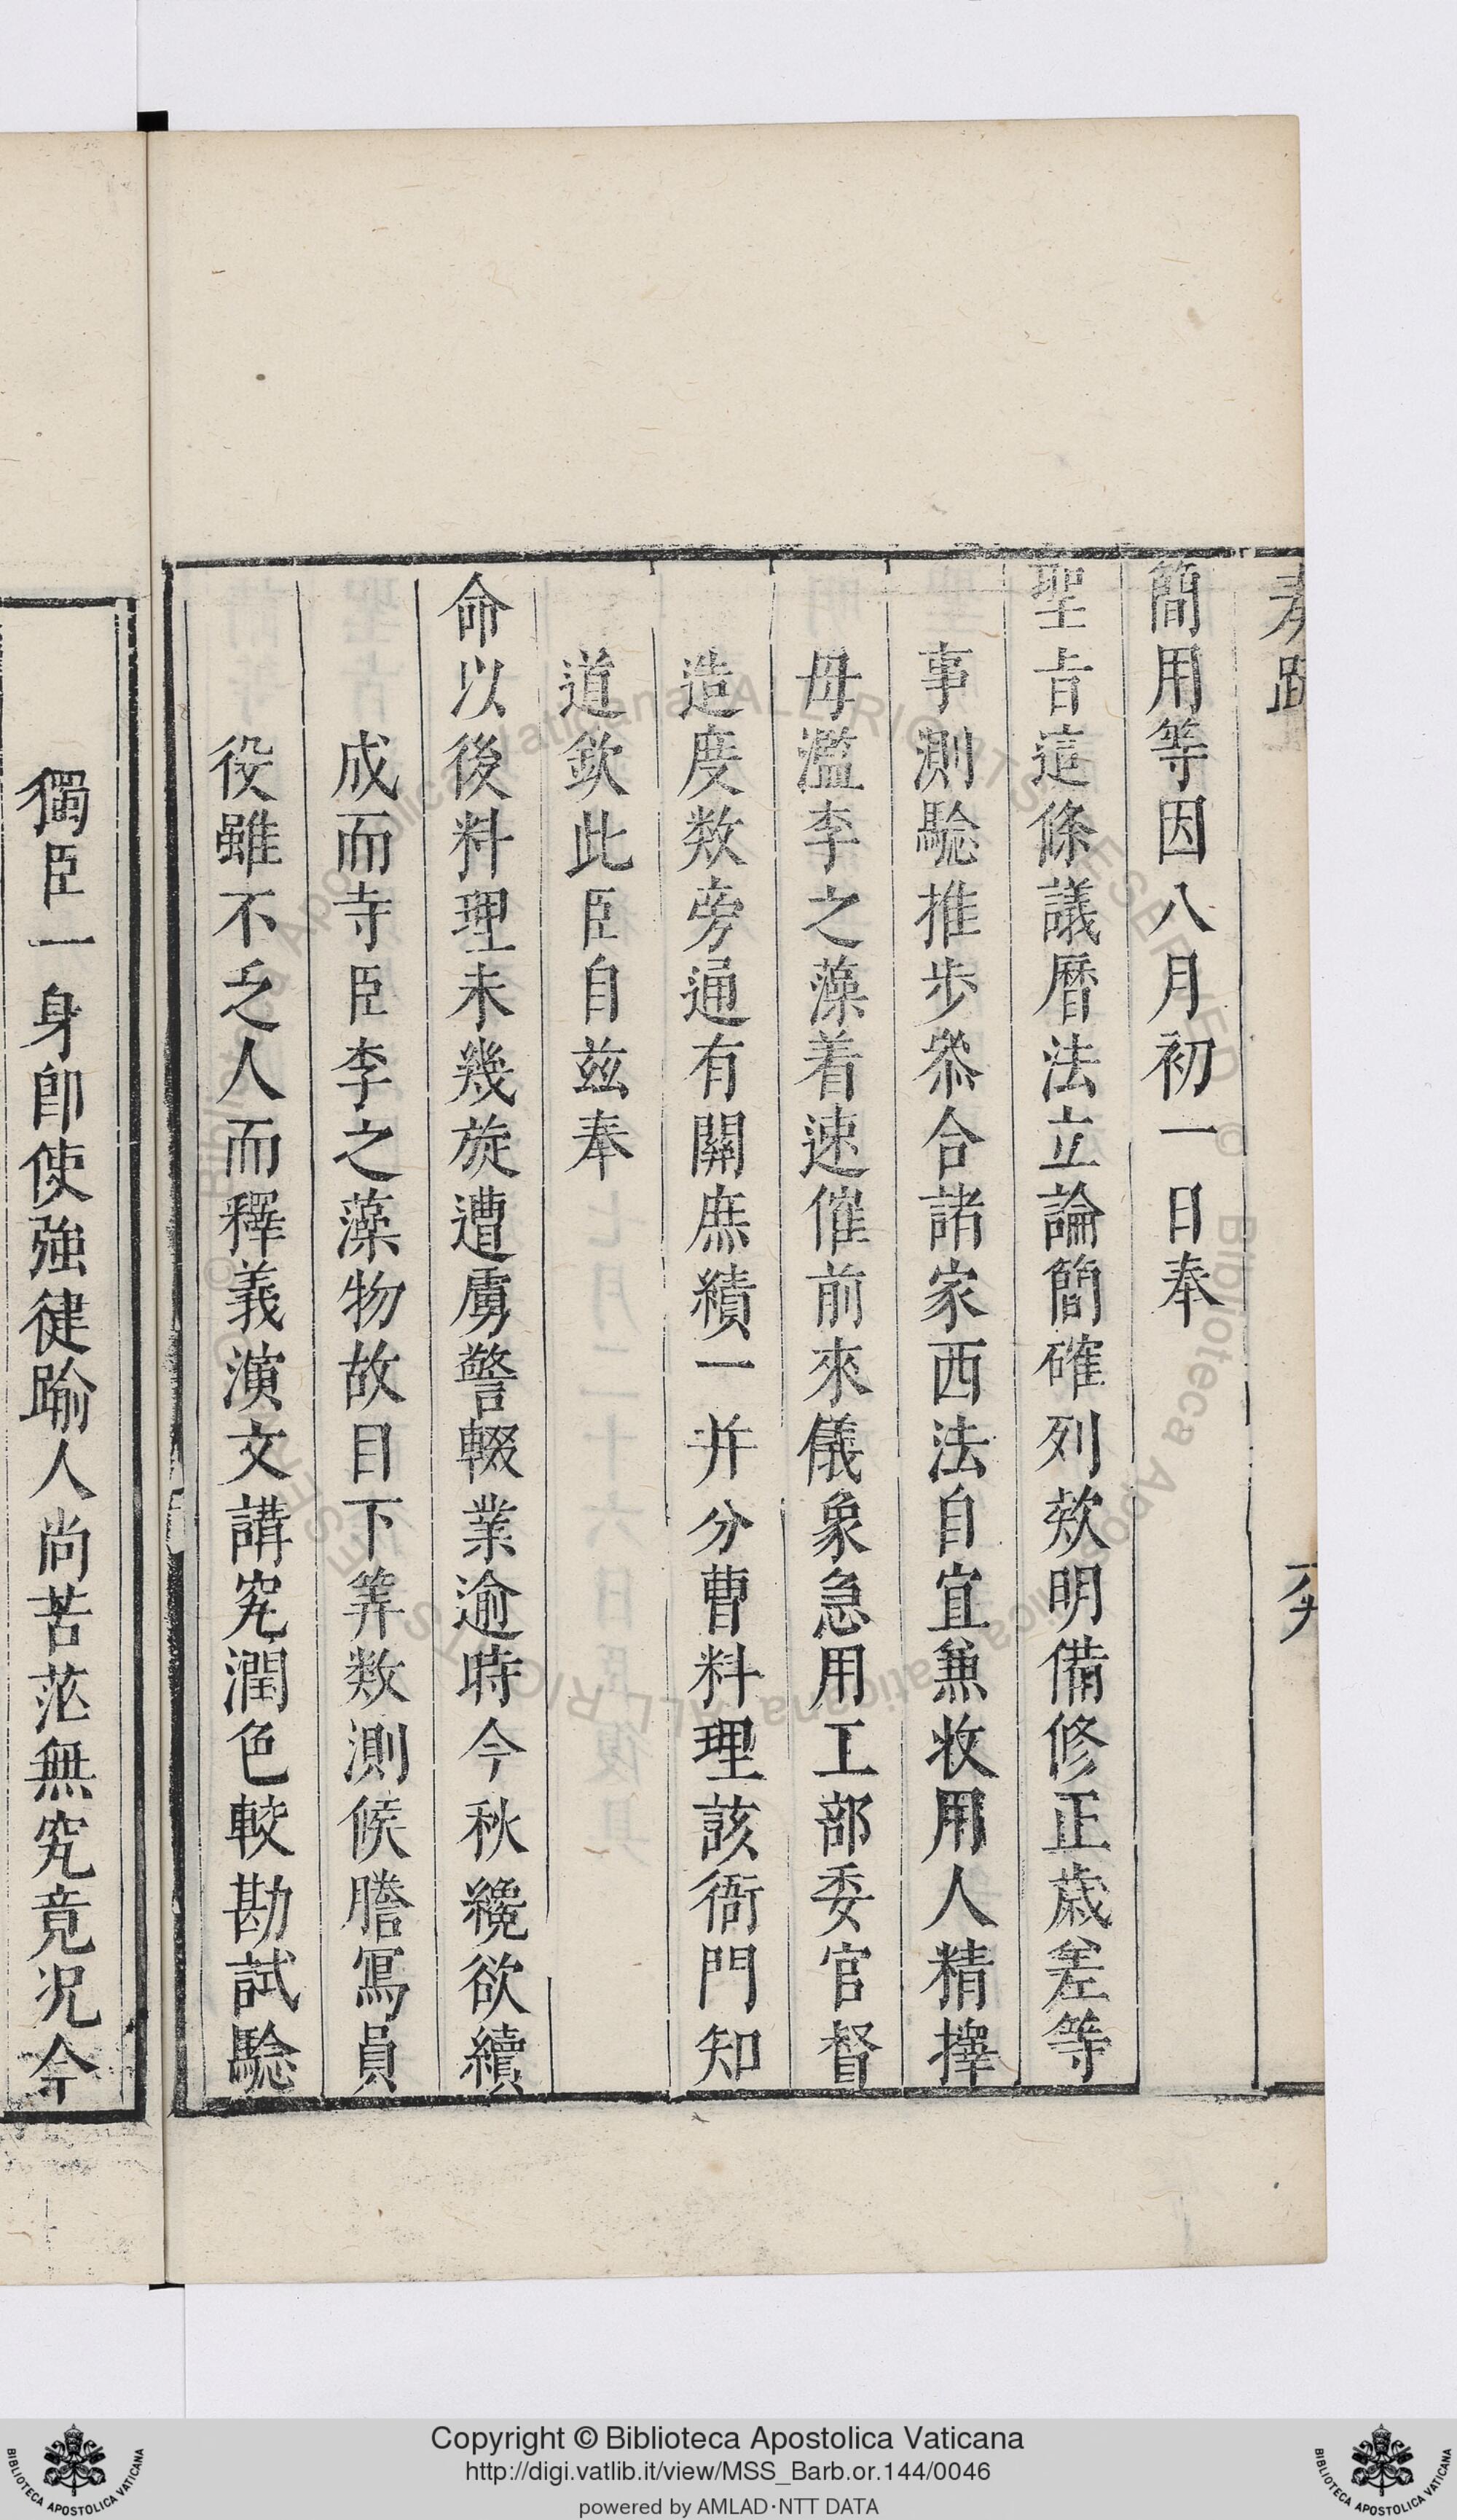 奏疏
簡用等因八月初一日奉
聖旨這條議曆法立論簡確列欵明備修正歳差等
事測驗推歩叅合諸家西法自宜兼收用人精擇
毋濫李之藻着速催前來儀象急用工部委官督
造度数旁通有關庶績一并分曹料理該衙門知
道欽此臣自兹奉
命以後料理未幾旋遭虜警輟業逾時今秋纔欲續
成而寺臣李之藻物故目下筭数測候謄寫員
役雖不乏人而釋義演文講究潤色較勘試驗
獨臣一身卽使強健踰人尚苦茫無究竟况今
Copyright © Biblioteca Apostolica Vaticana
http://digi.vatlib.it/view/MSS_Barb.or.144/0046
powered by AMLAD·NTT DATA
BIBLIOTECA APOSTOLICA VATICANA
BIBLIOTECA APOSTOLICA VATICANA